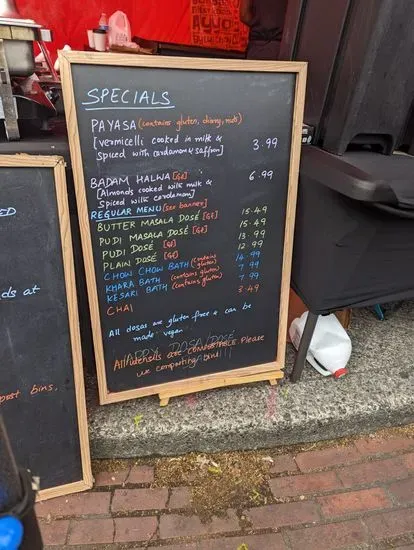 SPECIALS
PAYASA (contains gluten, diary, nuts)
[vermicelli cooked in milk & 3.99
spiced with cardamom & saffron]
BADAM HALWA [GF] 6.99
[Almonds cooked with milk &
Spiced with cardamom]
REGULAR MENU [see banner]
BUTTER MASALA DOSÉ [GF] 15.49
PUDI MASALA DOSÉ [GF] 15.49
PUDI DOSÉ [GF] 13.99
PLAIN DOSÉ [GF] 12.99
CHOW CHOW BATH (contains gluten) 14.99
KHARA BATH (contains gluten) 7.99
KESARI BATH (contains gluten) 7.99
CHAI 3.49
All dosas are gluten free & can be
made vegan
HAPPY DOSA/DOSÉ
All utensils are COMPOSTABLE. Please
use composting bin!
ED
ds at
post bins.